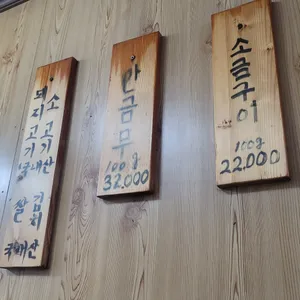 소고기
돼지고기
국내산
쌀 김치
국내산
안금무
100g
32.000
소금구이
100g
22.000